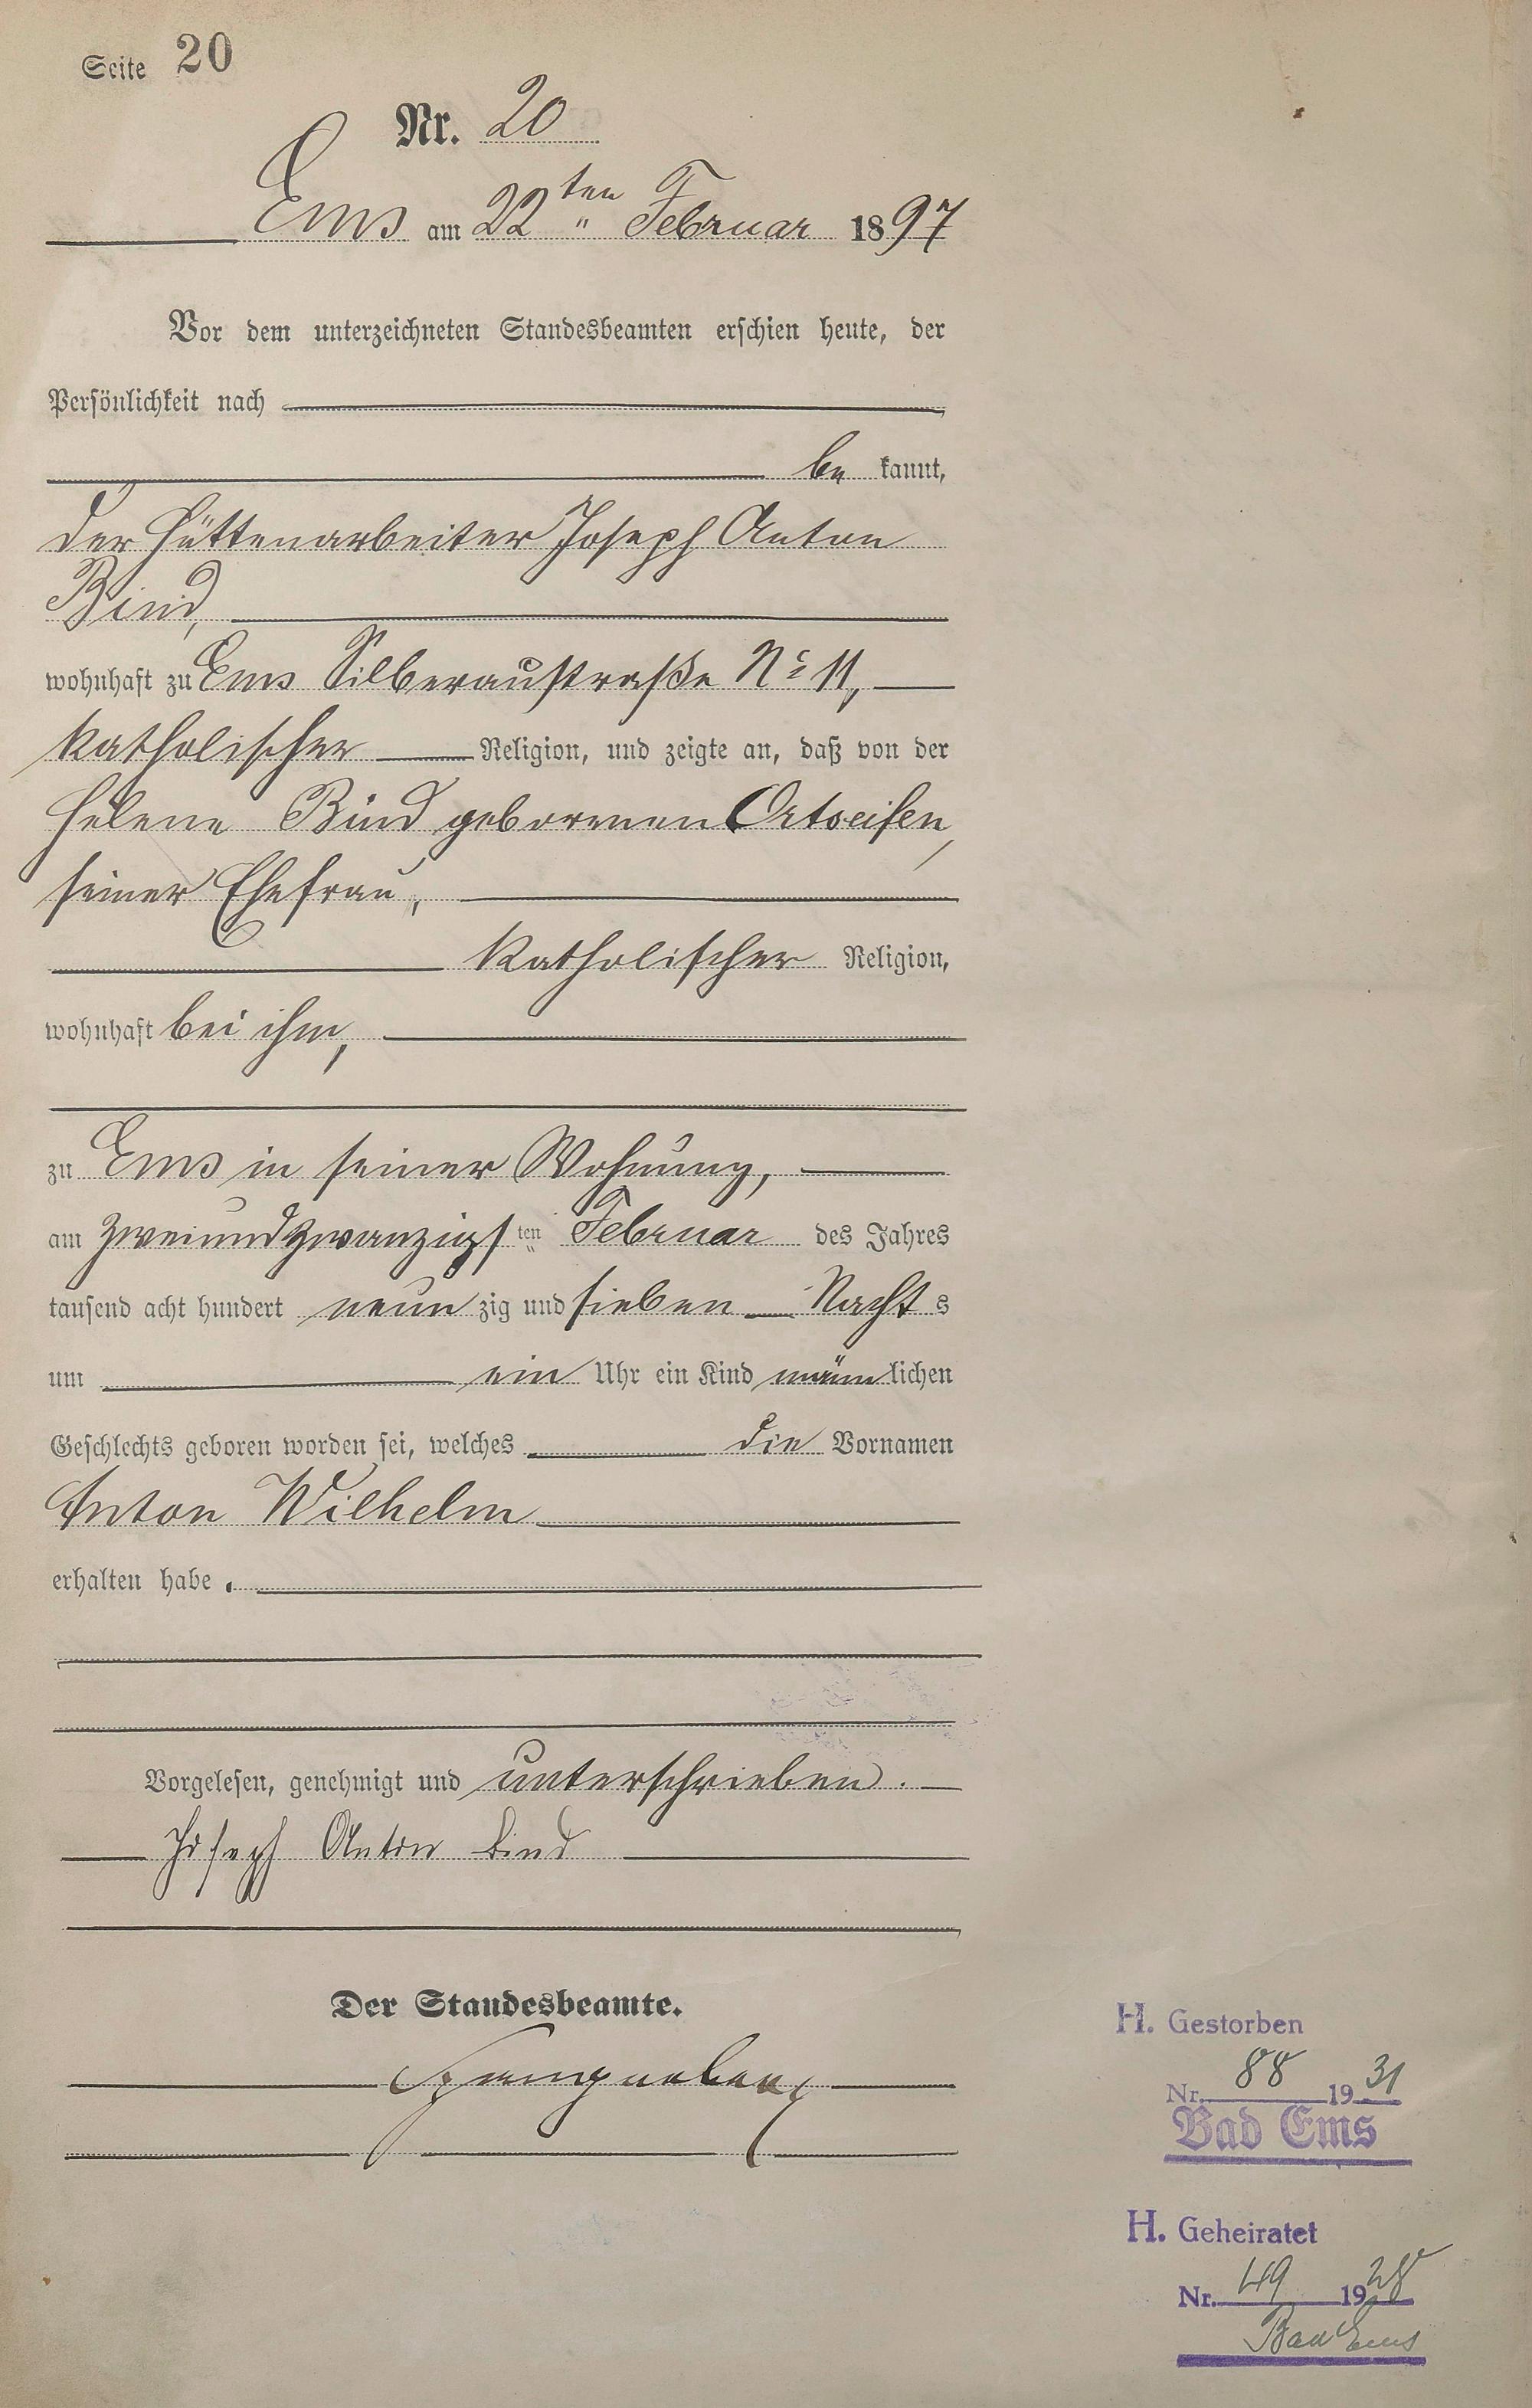 Seite 20
Nr. 20
Ems am 22ten " Februar 1897
Vor dem unterzeichneten Standesbeamten erschien heute, der
Persönlichkeit nach
be kannt,
der Hüttenarbeiter Joseph Anton
Bind,
wohnhaft zu Ems Silberaustraße No 11,
katholischer Religion, und zeigte an, daß von der
Helene Bind geborenen Ortseifen,
seiner Ehefrau,
katholischer Religion,
wohnhaft bei ihm,
zu Ems in seiner Wohnung,
am zweiundzwanzigsten Februar des Jahres
tausend acht hundert neunzig und sieben Nachts
um ein Uhr ein Kind männlichen
Geschlechts geboren worden sei, welches die Vornamen
Anton Wilhelm
erhalten habe.
Vorgelesen, genehmigt und unterschrieben.
Joseph Anton Bind
Der Standesbeamte.
H. Gestorben
Nr. 88 1931
Bad Ems
H. Geheiratet
Nr. 49 1928
Bad Ems